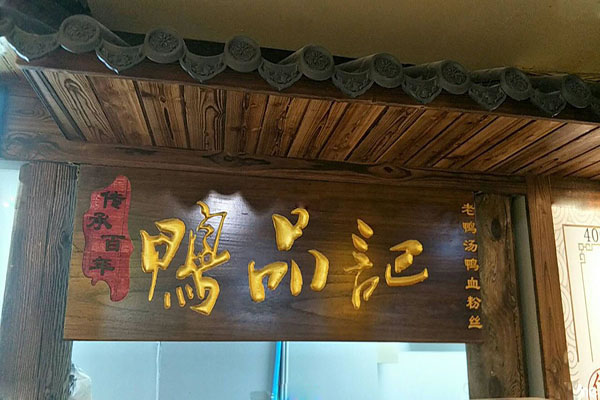 传承百年
鴨品記
老鸭汤鸭血粉丝
40